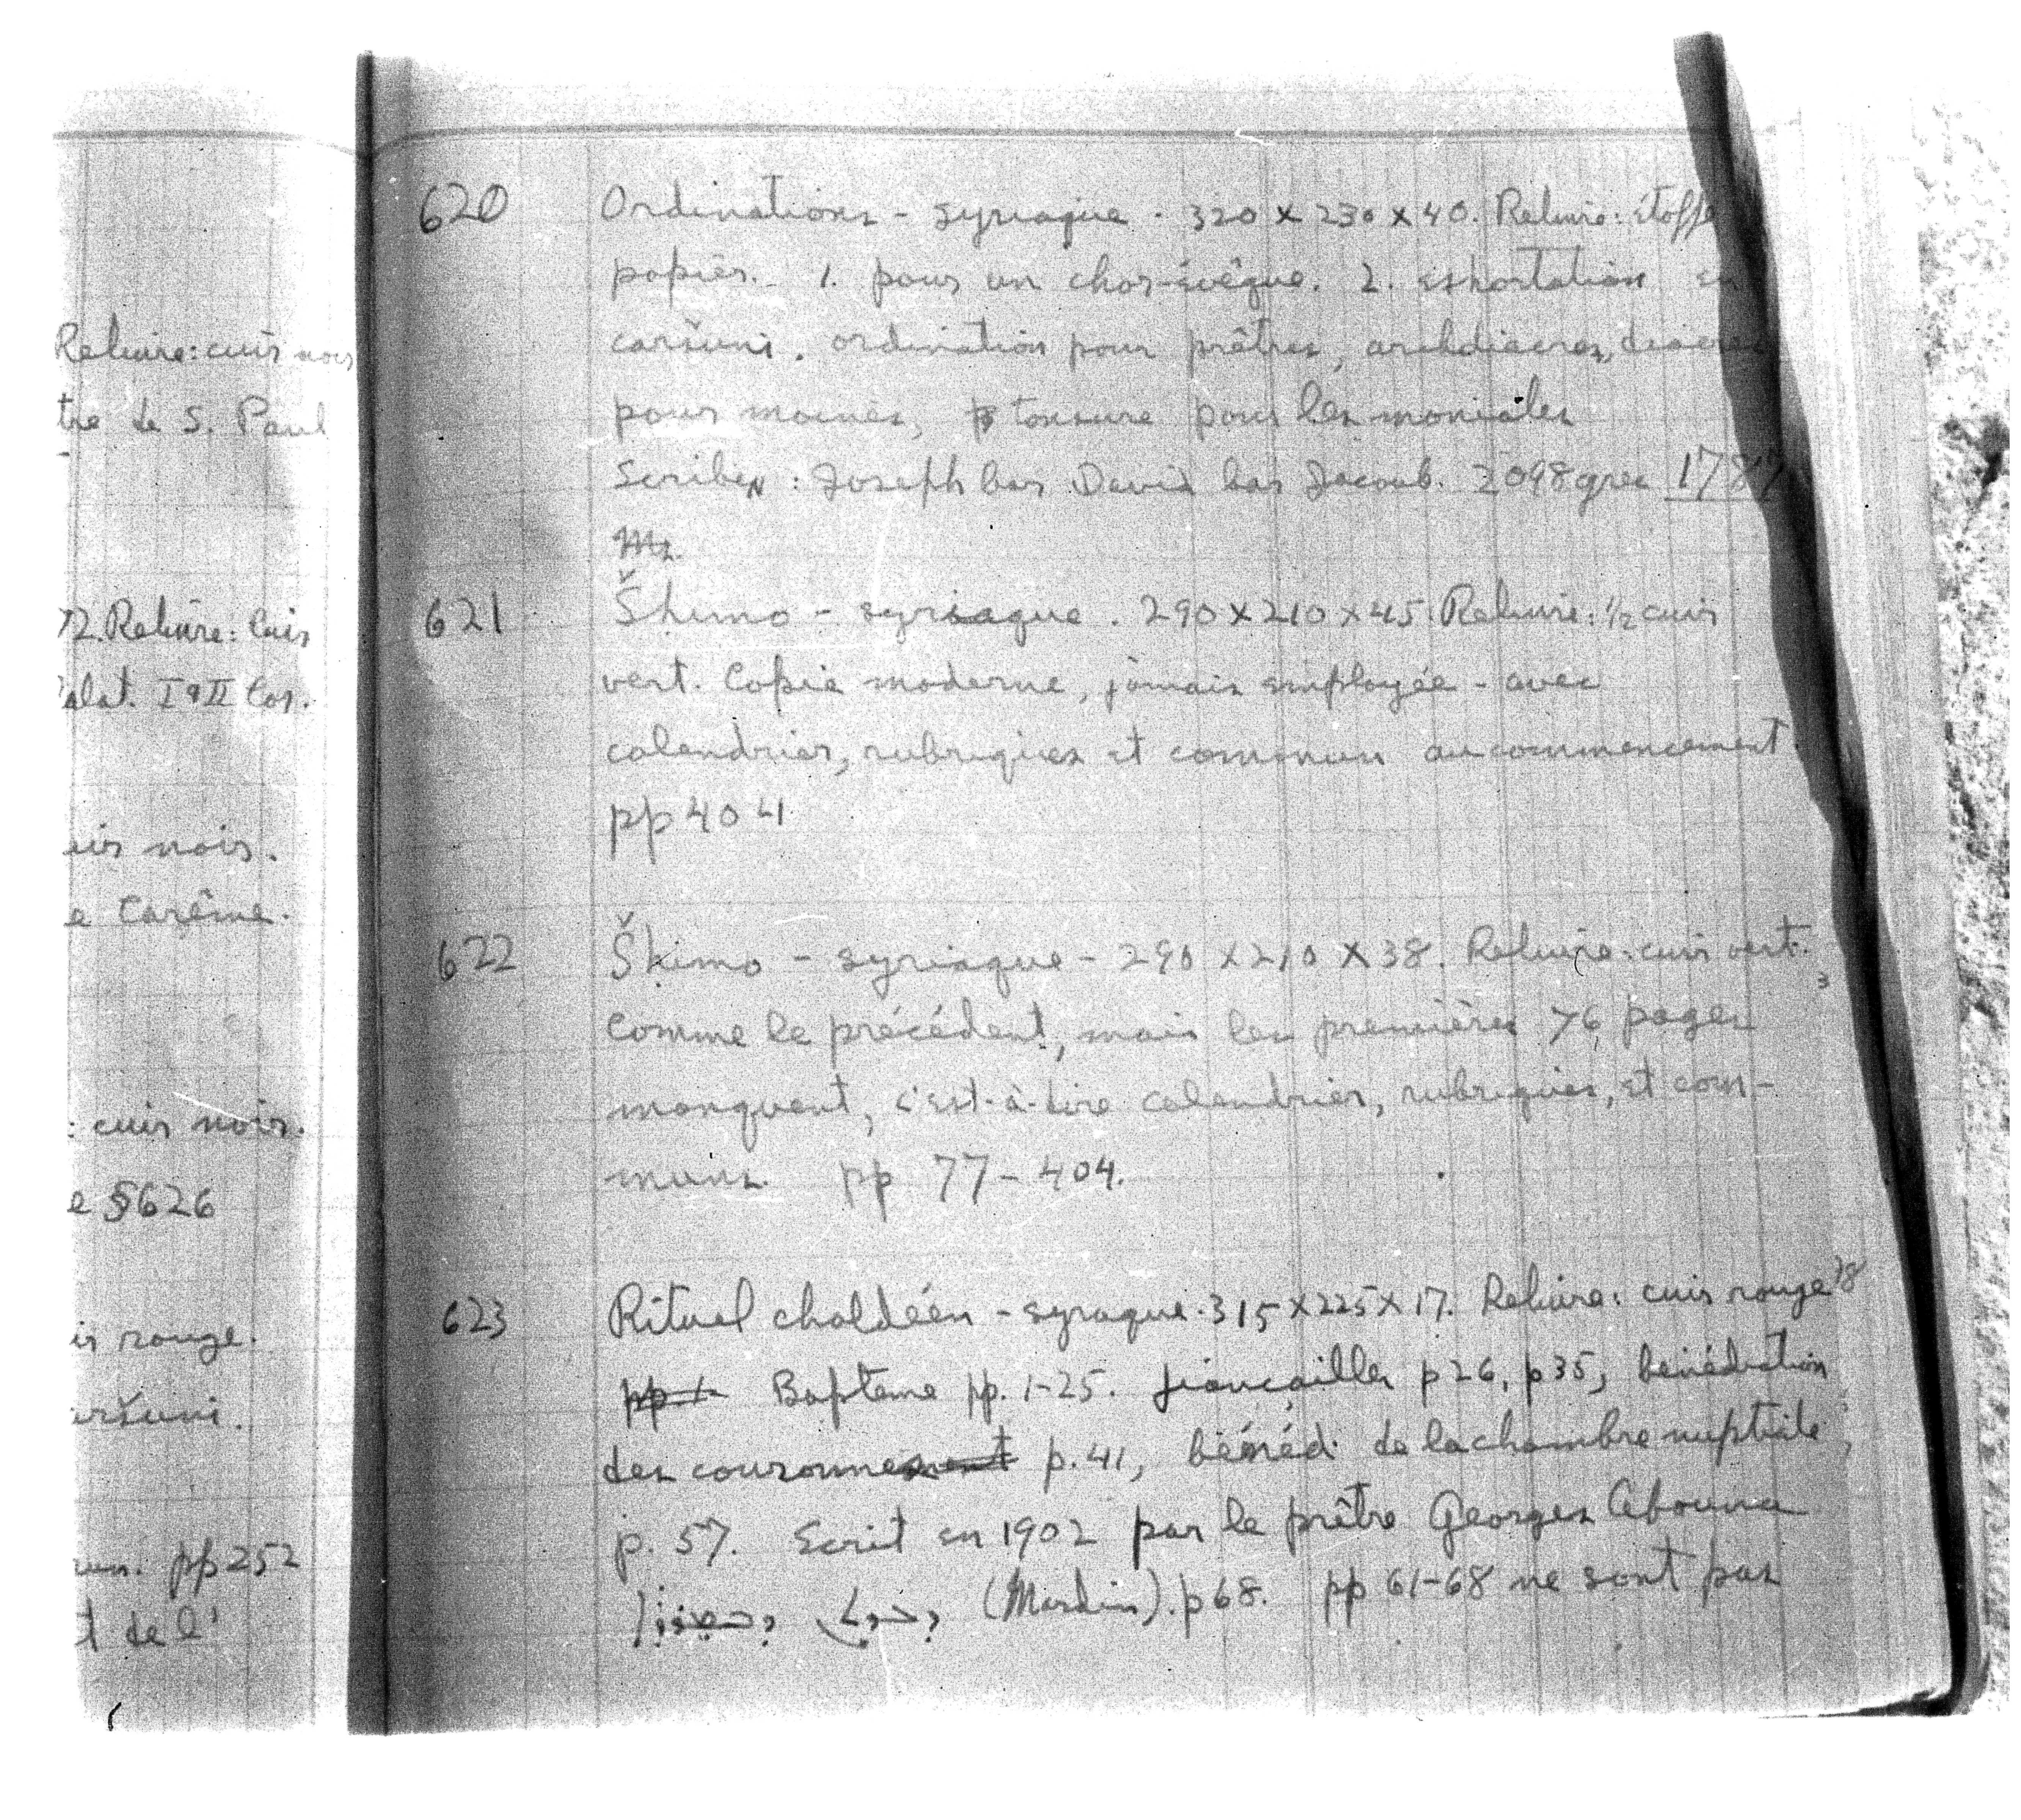 Reliure: cuir noir
tre de S. Paul
72. Reliure: Cuir
alat. I et II Cor.
uir noir.
e Carême.
: cuir noir.
e §626
ir rouge.
aršuni.
pp 252
t de l'
620 Ordinations - syriaque. 320 x 230 x 40. Reliure: étoffe
papier. 1. pour un chor-évêque. 2. exhortation en
caršuni. ordination pour prêtres, archidiacres, diacres
pour moines, tonsure pour les moniales
Scribe : Joseph bar David bar Jacoub. 2098 grec 1787
621 Šhimo - syriaque. 290 x 210 x 45 Reliure: 1/2 cuir
vert. Copie moderne, jamais employée - avec
calendrier, rubriques et commun au commencement.
pp 404
622 Šhimo - syriaque - 290 x 210 x 38. Reliure: cuir vert.
Comme le précédent, mais les premières 76 pages
manquent, c'est-à-dire calendrier, rubriques, et com-
muns. pp 77-404.
623 Rituel chaldéen - syriaque. 315 x 225 x 17. Reliure: cuir rouge 78
pp 1- Bapteme pp. 1-25. fiançailles p 26, p 35, bénédiction
des couronnes p. 41, bénéd. de la chambre nuptiale,
p. 57. Ecrit en 1902 par le prêtre Georges Abouna
(Mardin). p 68. pp 61-68 ne sont pas